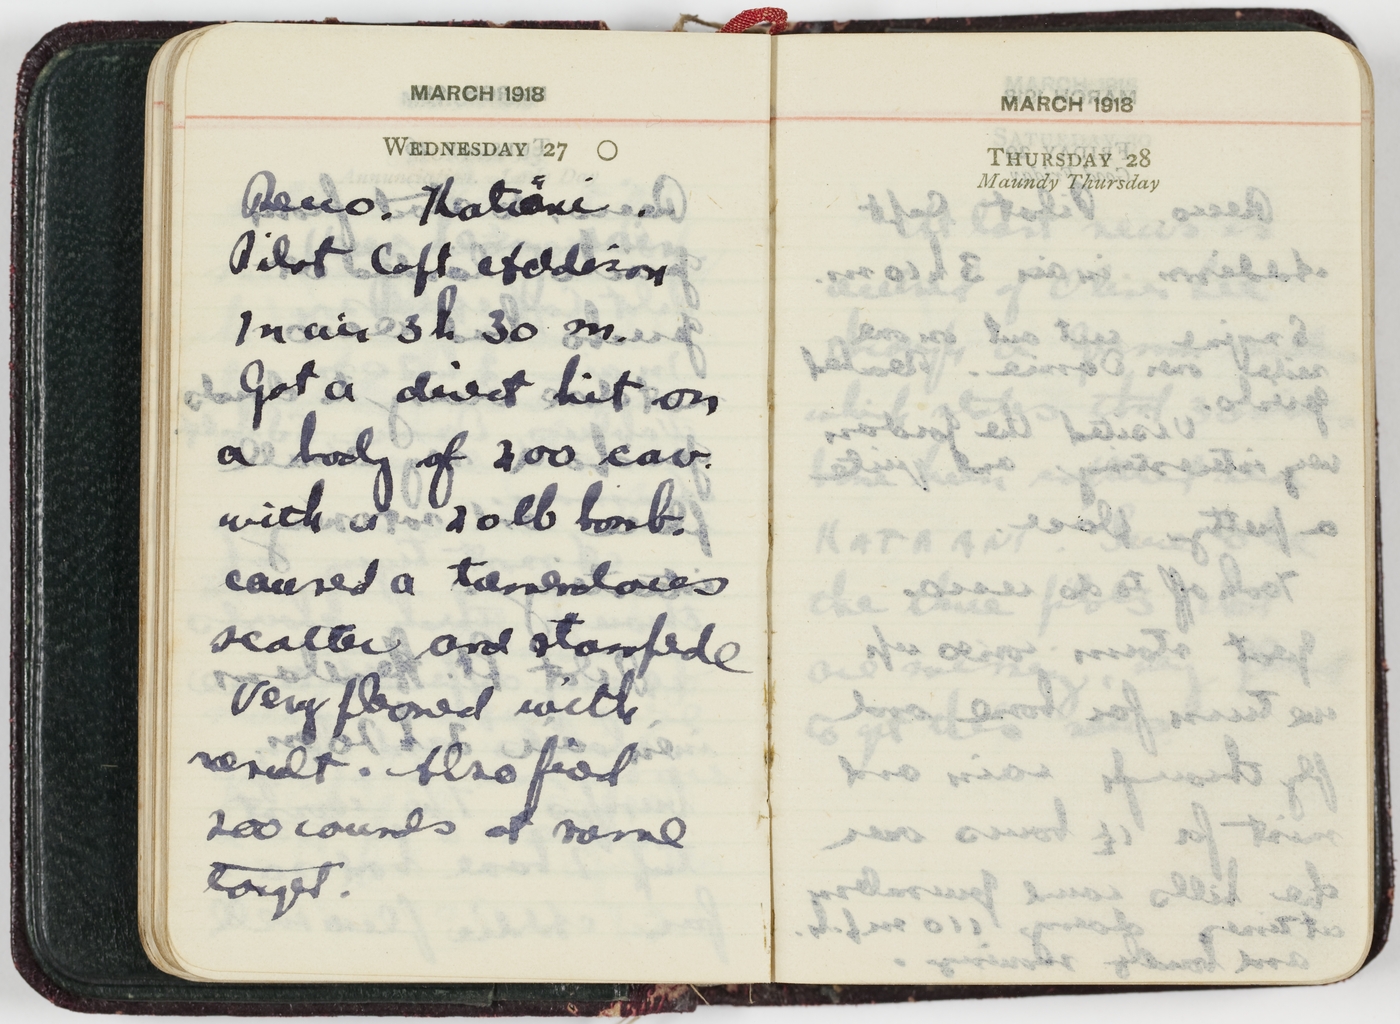 MARCH 1918
WEDNESDAY 27
Reco. Katrani.
Pilot Capt Addison
In air 3h 30 m.
Got a direct hit on
a body of 200 cav.
with a 20 lb bomb.
caused a tremendous
scatter and stampede
Very pleased with
result. Also fired
200 rounds at same
target.
MARCH 1918
THURSDAY 28
Maundy Thursday